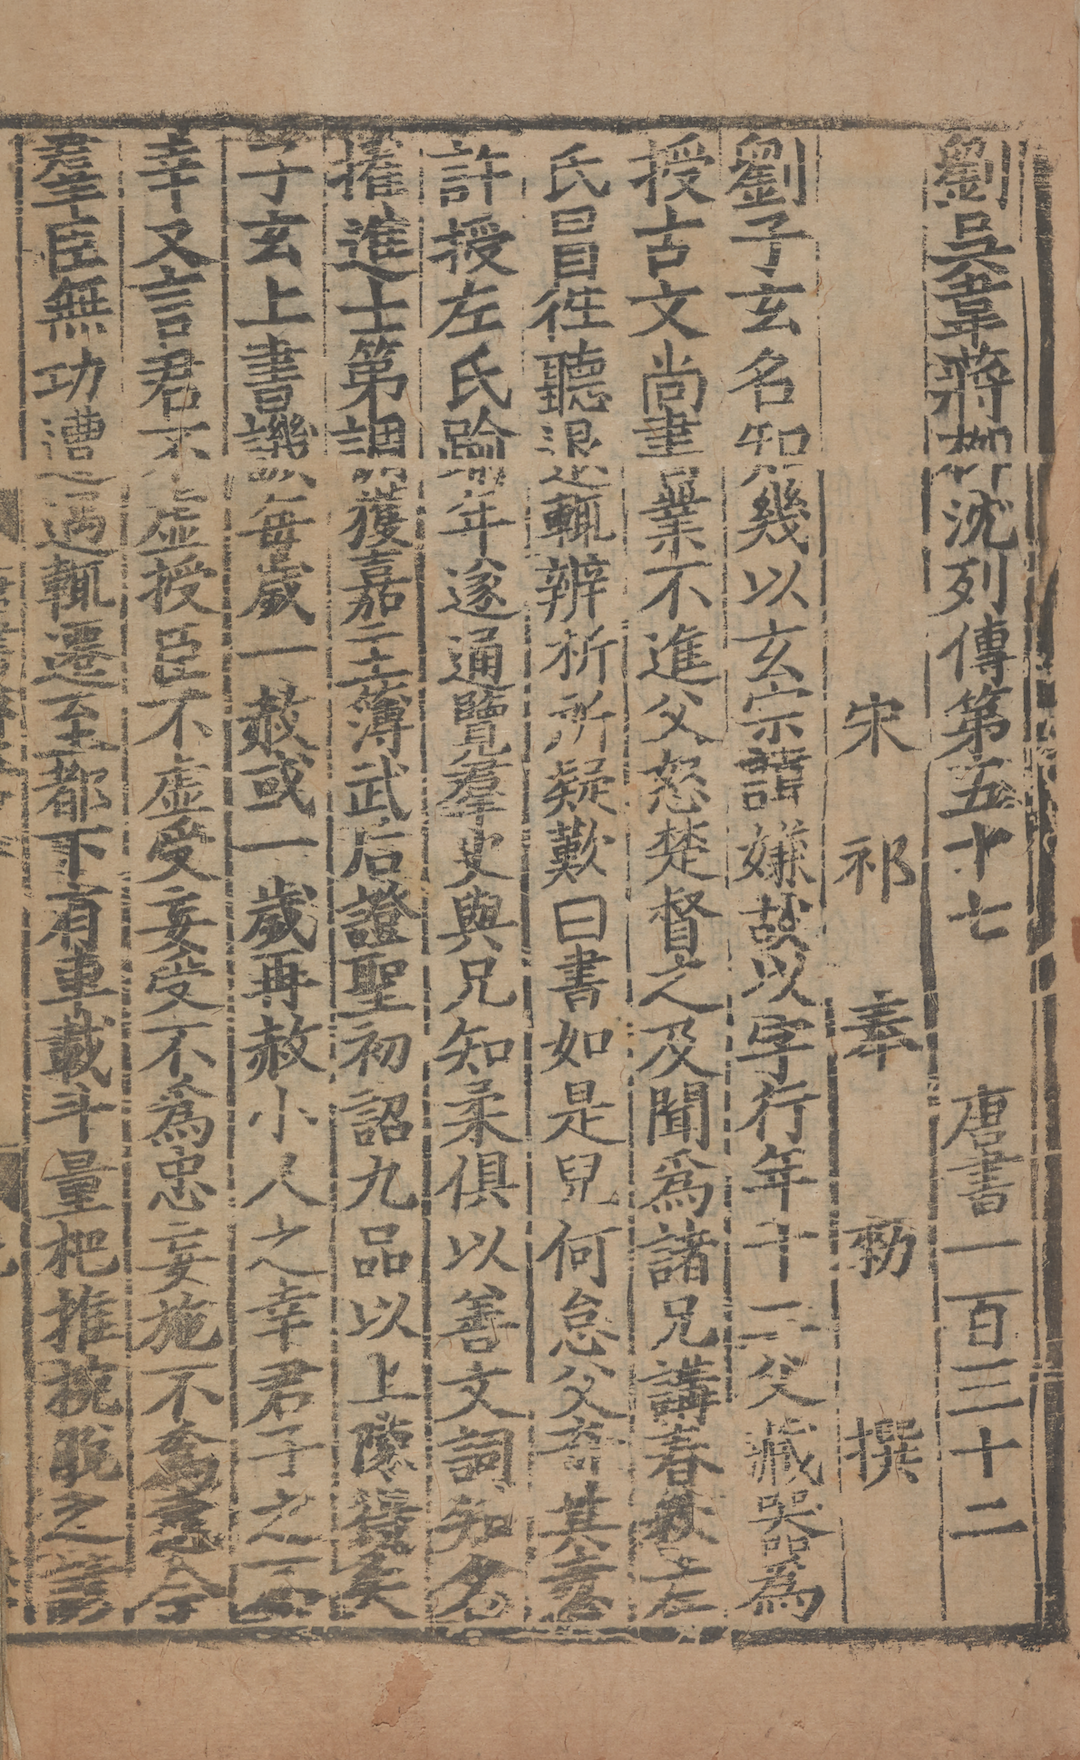 劉吳韋蔣柳沈列傳第五十七 唐書一百三十二
宋祁奉勑撰
劉子玄名知幾以玄宗諱嫌故以字行年十二父藏器爲
授古文尚書業不進父怒楚督之及聞爲諸兄講春秋左
氏冒往聽退輒辨析所疑歎曰書如是兒何怠父奇其意
許授左氏踰年遂通覽羣史與兄知柔俱以善文詞知名
擢進士第調獲嘉主簿武后證聖初詔九品以上陳得失
子玄上書譏每歲一赦或一歲再赦小人之幸君子之不
幸又言君不虛授臣不虛受妄受不爲忠妄施不爲惠今
羣臣無功遭遇輒遷至都下有車載斗量杷推椀脫之諺